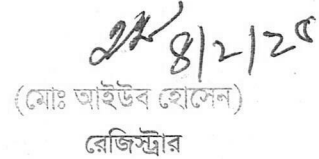 8/2/2৫
(মোঃ আইউব হোসেন)
রেজিস্ট্রার